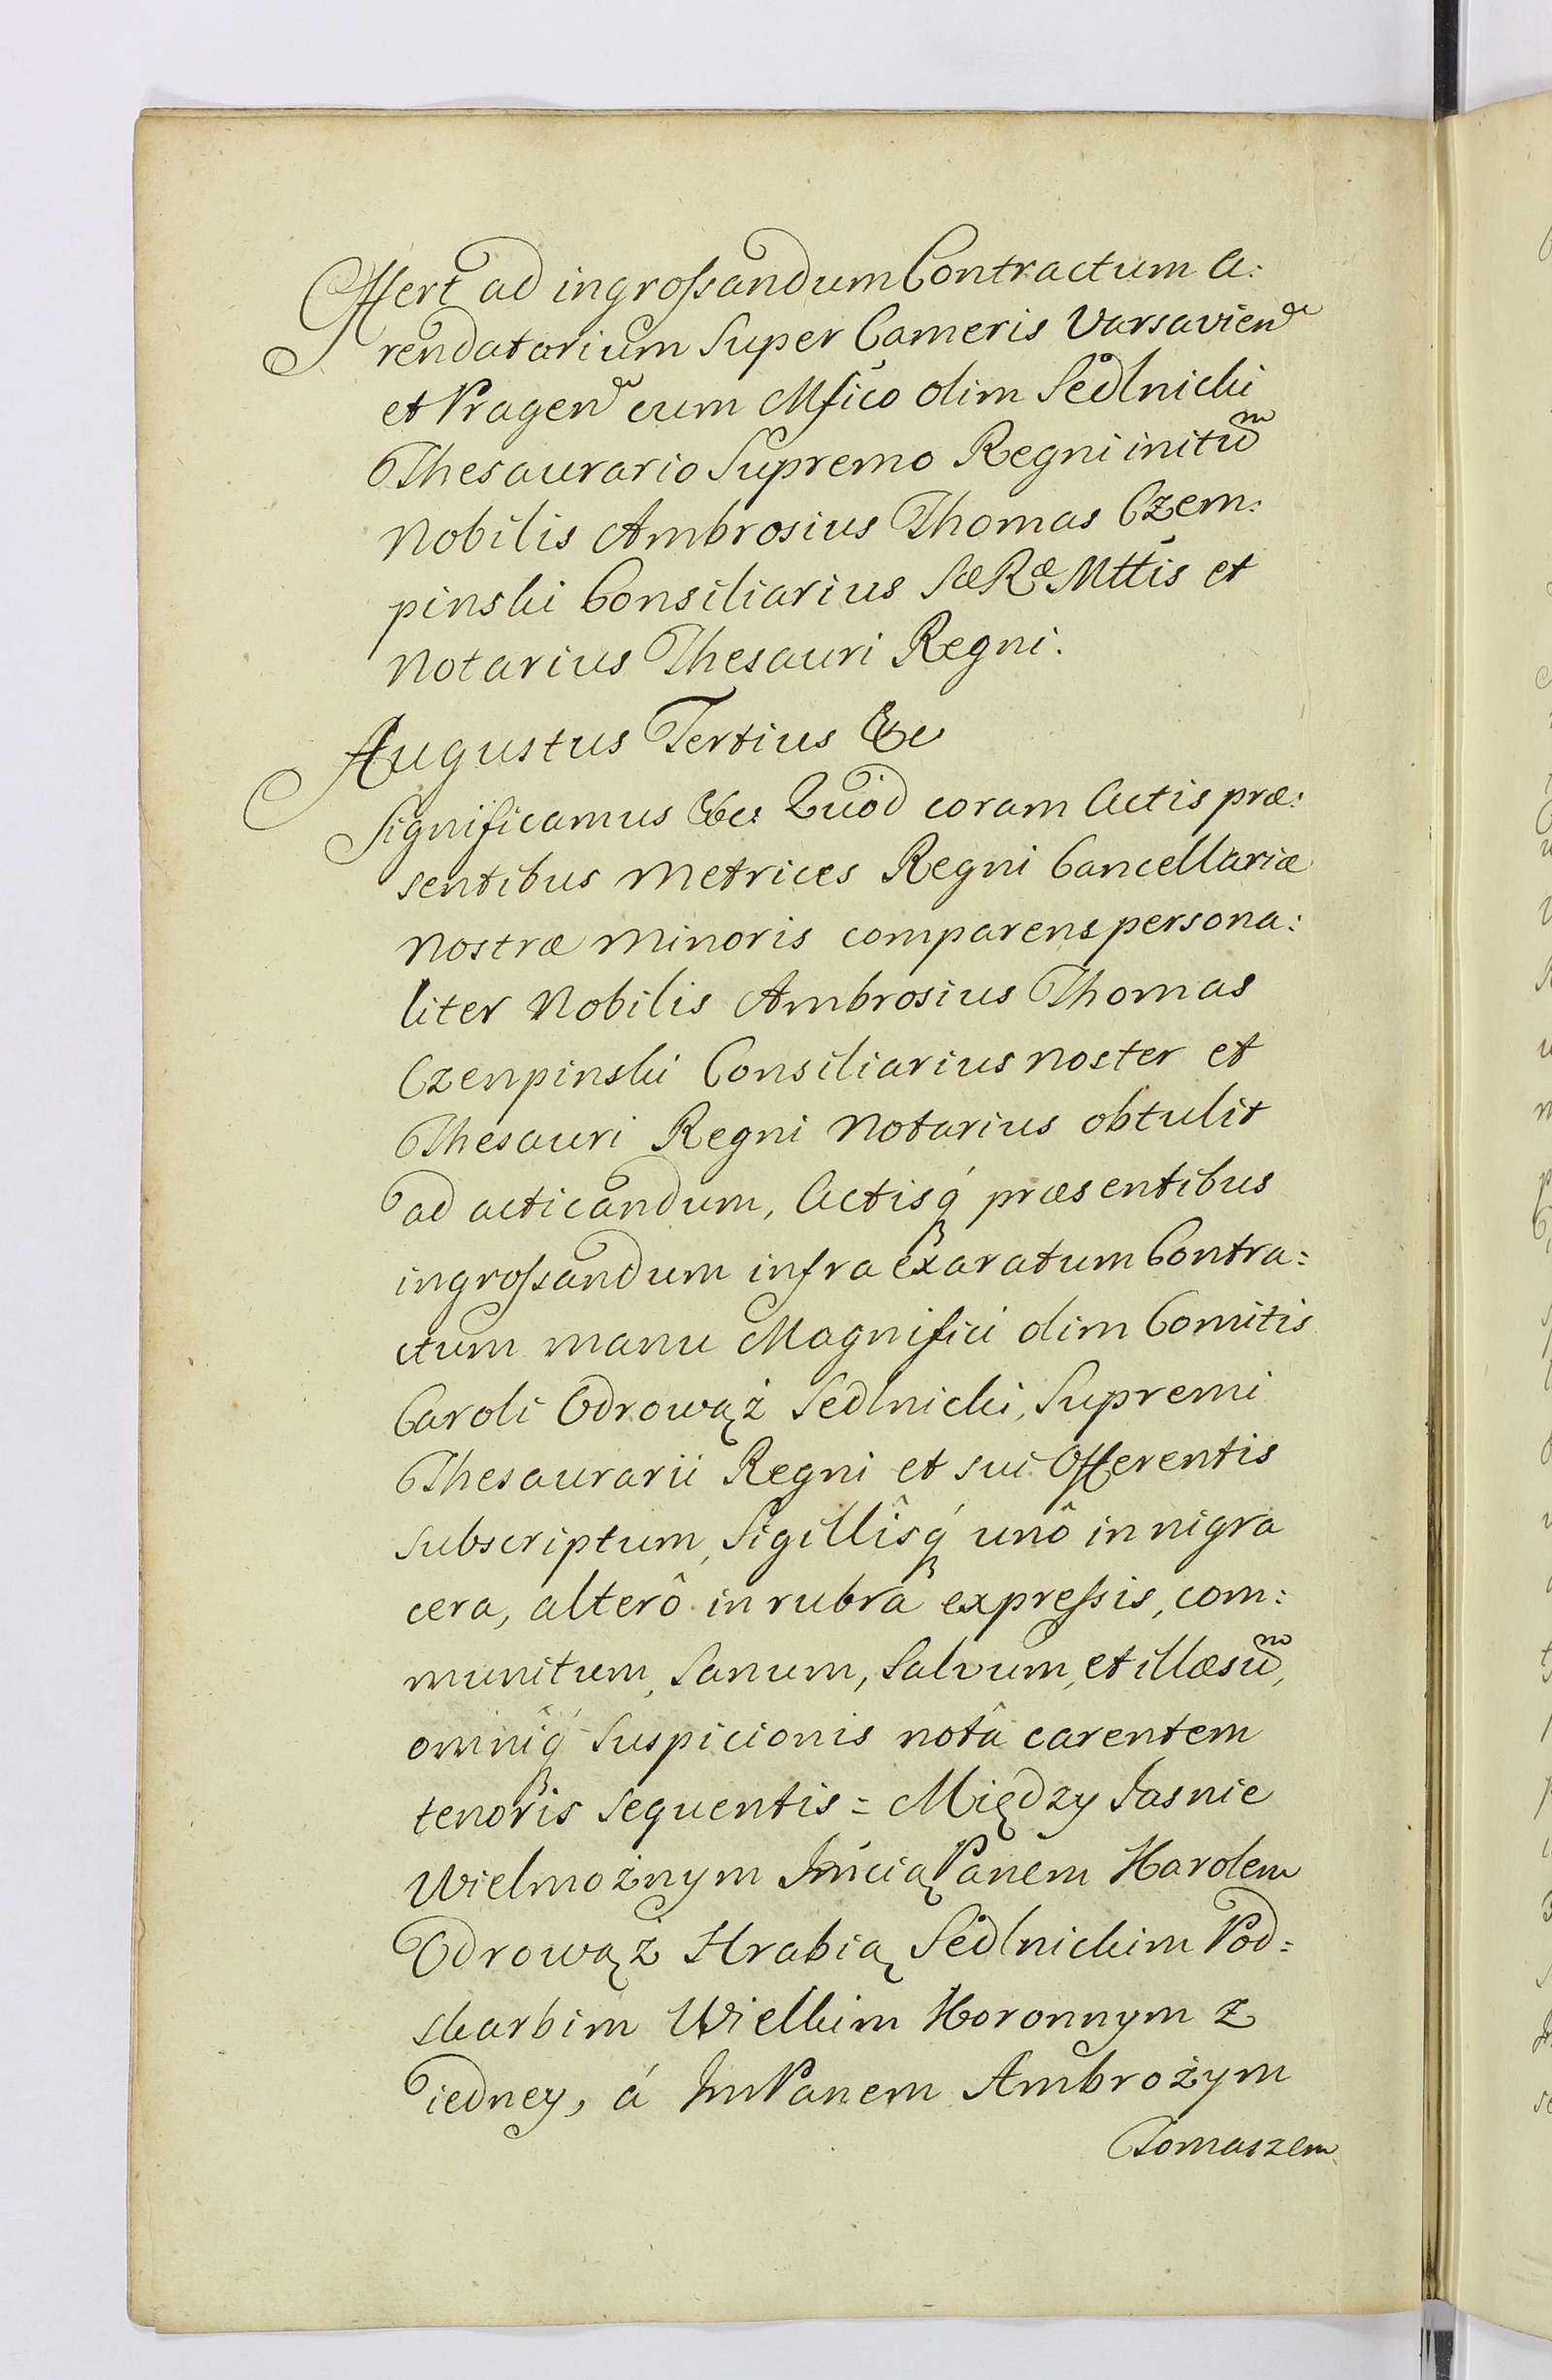 Offert ad ingrossandum Contractum A:
rendatorium Super Cameris Varsavien
et Pragen cum Mfico olim Sedlnicki
Thesaurario Supremo Regni initum
Nobilis Ambrosius Thomas Czem:
pinski Consiliarius SæRæ Mttis et
Notarius Thesauri Regni.
Augustus Tertius &c
Significamus &c: Quod coram Actis præ:
sentibus Metrices Regni Cancellariæ
Nostræ Minoris comparens persona:
liter Nobilis Ambrosius Thomas
Czenpinski Consiliarius noster et
Thesauri Regni Notarius obtulit
ad acticandum, Actisq́ præsentibus
ingrossandum infra exaratum Contra=
ctum manu Magnifici olim Comitis
Caroli Odrowąż Sedlnicki, Supremi
Thesaurarii Regni et sui Offerentis
subscriptum, Sigillîsq́ unô in nigra
cera, alterô in rubra expressis, com:
munitum, Sanum, Salvum, et illæsum,
omniq́ Suspicionis notâ carentem
tenoris Sequentis = Między Jasnie
Wielmożnym Jmcią Panem Karolem
Odrowąż Hrabią Sedlnickim Pod=
skarbim Wielkim Koronnym z
iedney, á JmPanem Ambrożym
Tomaszem